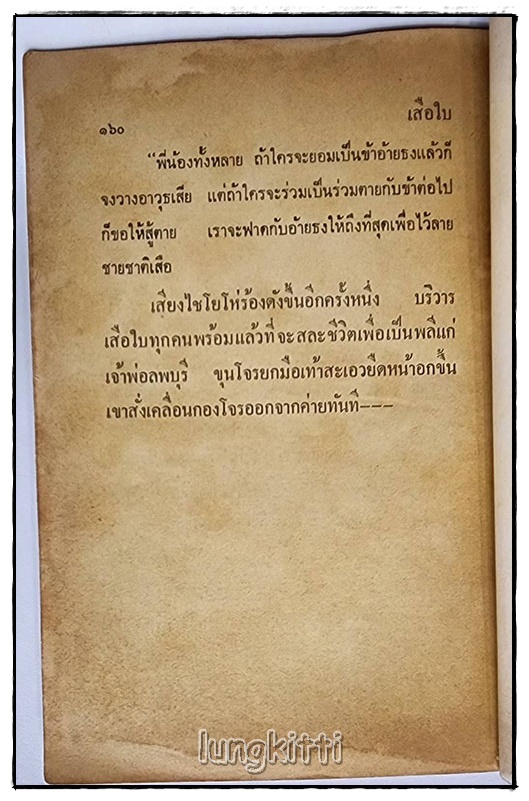 ๑๖๐ เสือใบ
“พี่น้องทั้งหลาย ถ้าใครจะยอมเป็นข้าอ้ายธงแล้วก็
จงวางอาวุธเสีย แต่ถ้าใครจะร่วมเป็นร่วมตายกับข้าต่อไป
ก็ขอให้สู้ตาย เราจะฟาดกับอ้ายธงให้ถึงที่สุดเพื่อไว้ลาย
ชายชาติเสือ
เสียงไชโยโห่ร้องดังขึ้นอีกครั้งหนึ่ง บริวาร
เสือใบทุกคนพร้อมแล้วที่จะสละชีวิตเพื่อเป็นพลีแก่
เจ้าพ่อลพบุรี ขุนโจรยกมือเท้าสะเอวยืดหน้าอกขึ้น
เขาสั่งเคลื่อนกองโจรออกจากค่ายทันที---
lungkitti